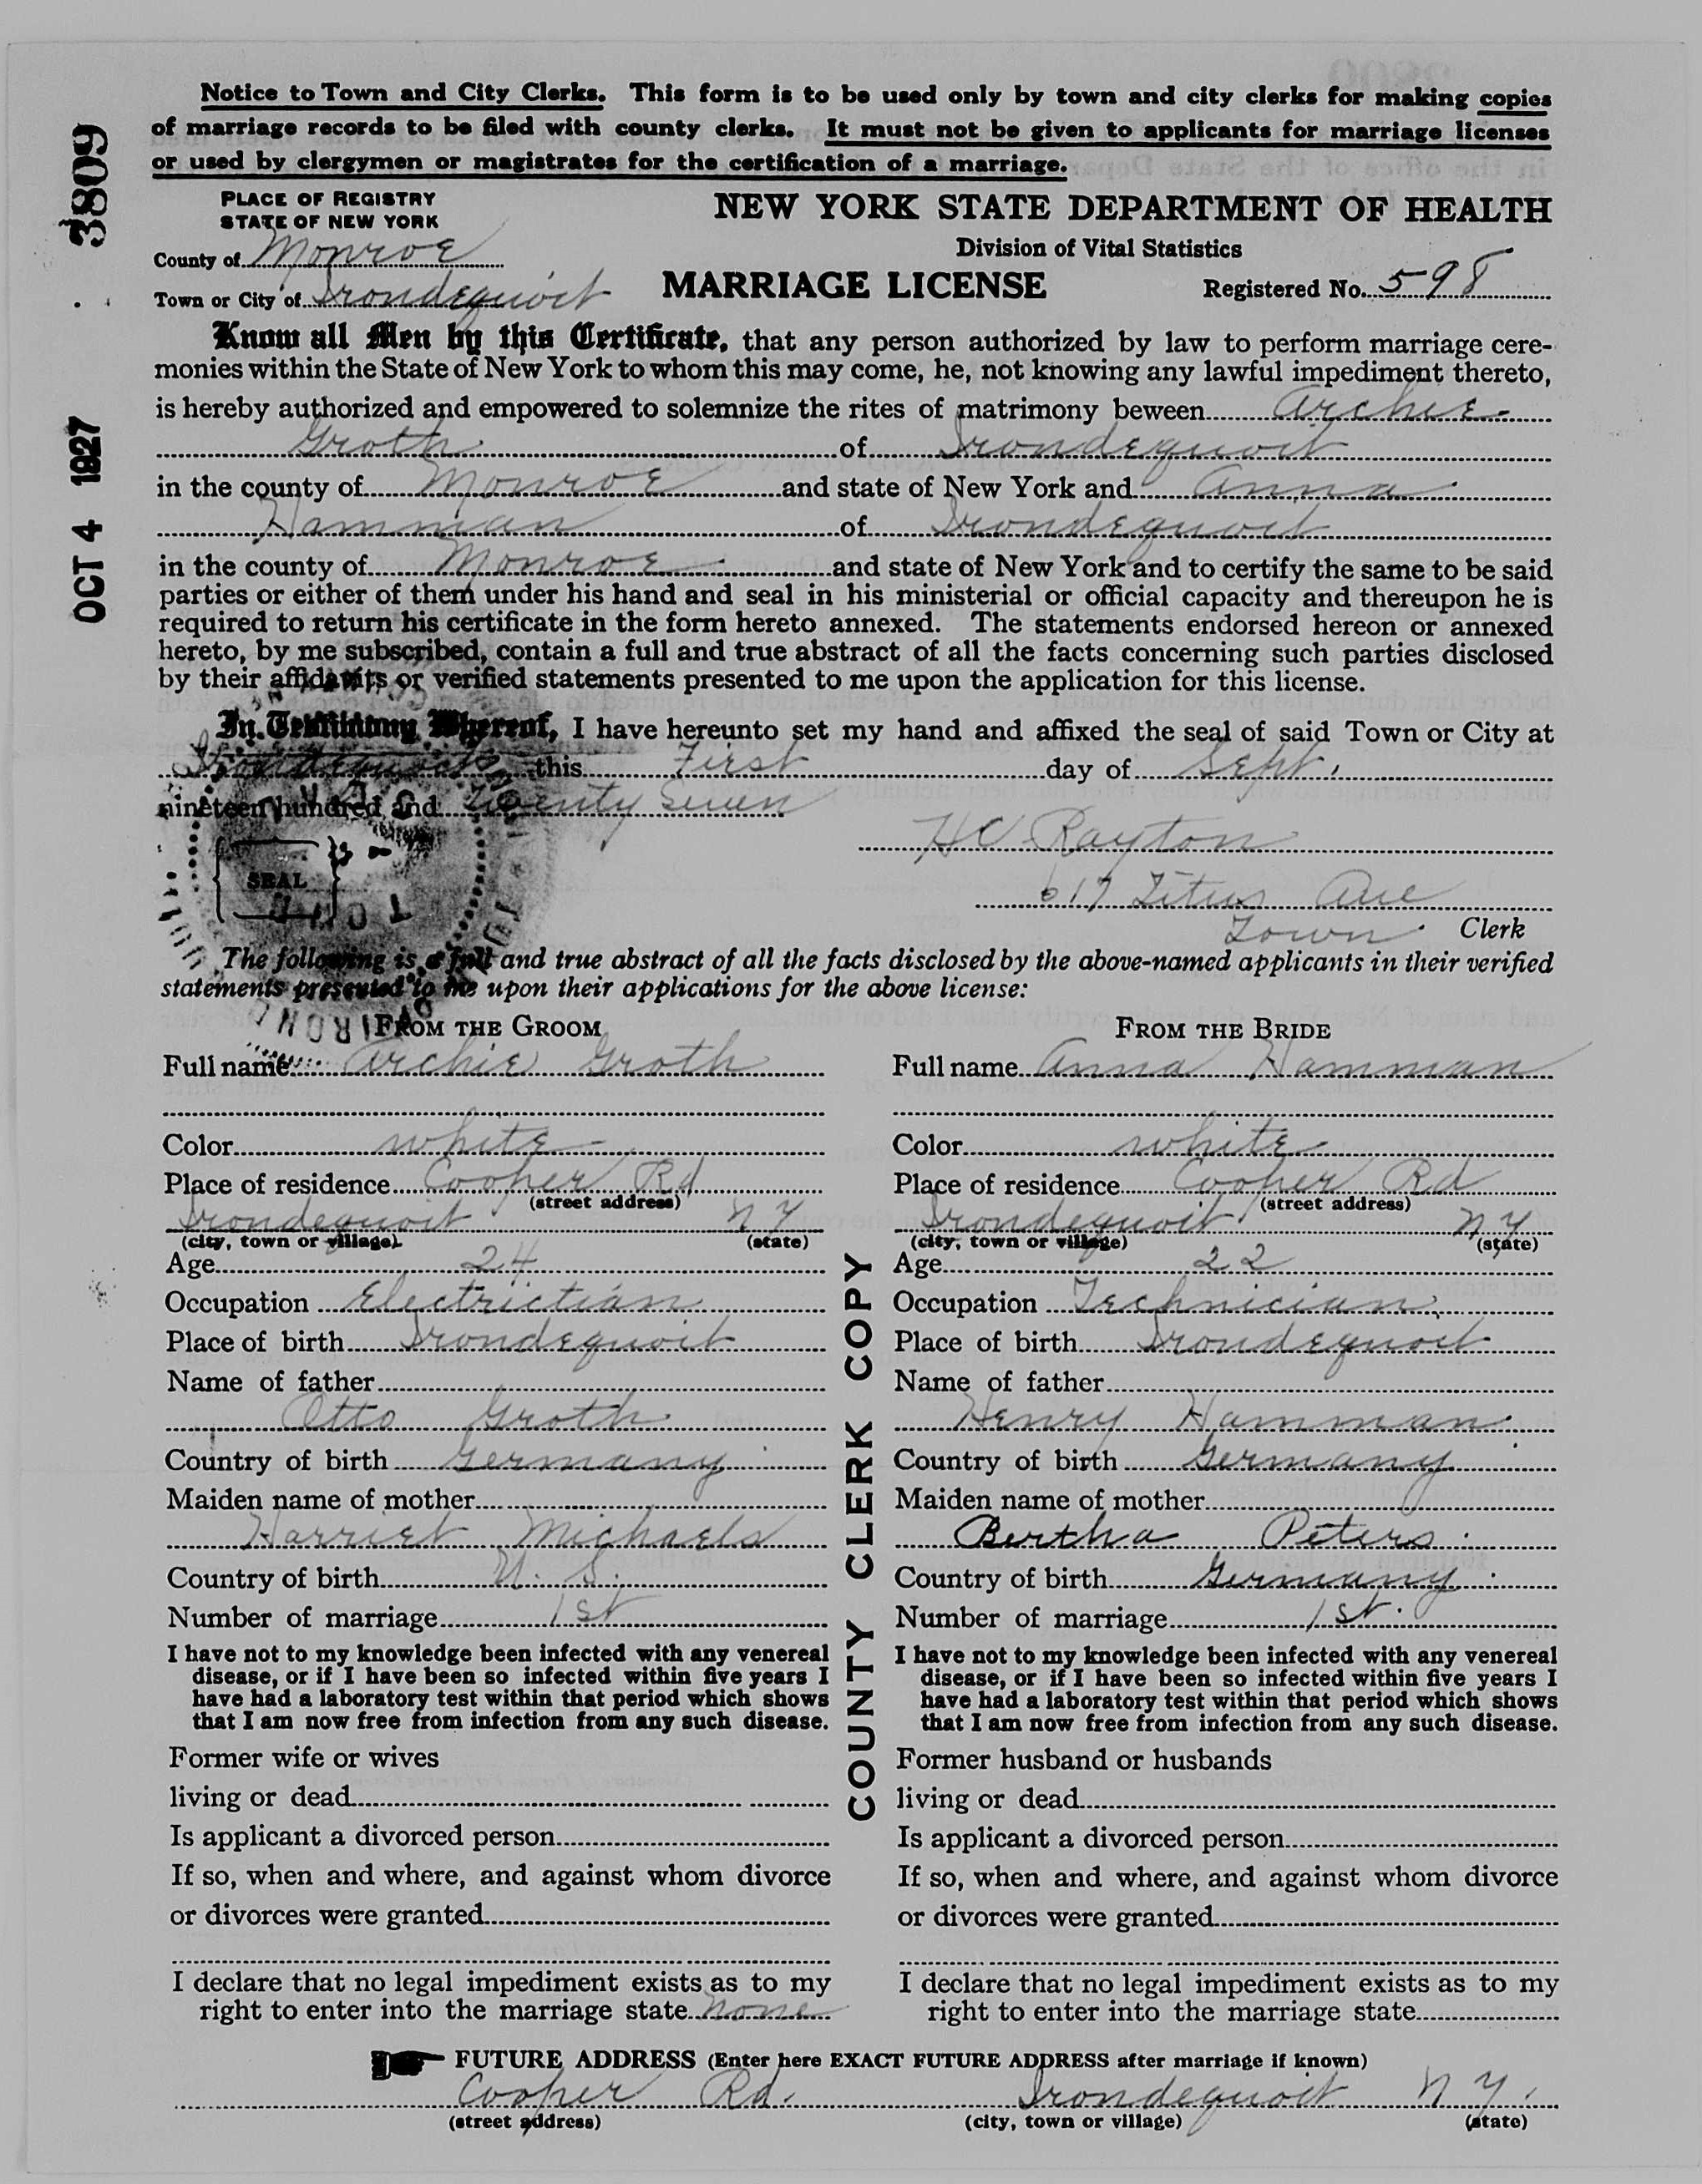 3809
OCT 4 1927
Notice to Town and City Clerks. This form is to be used only by town and city clerks for making copies
of marriage records to be filed with county clerks. It must not be given to applicants for marriage licenses
or used by clergymen or magistrates for the certification of a marriage.
PLACE OF REGISTRY
STATE OF NEW YORK
County of Monroe
Town or City of Irondequoit
NEW YORK STATE DEPARTMENT OF HEALTH
Division of Vital Statistics
MARRIAGE LICENSE
Registered No. 598
Know all Men by this Certificate, that any person authorized by law to perform marriage cere-
monies within the State of New York to whom this may come, he, not knowing any lawful impediment thereto,
is hereby authorized and empowered to solemnize the rites of matrimony beween Archie
Groth of Irondequoit
in the county of Monroe and state of New York and Anna
Hamman of Irondequoit
in the county of Monroe and state of New York and to certify the same to be said
parties or either of them under his hand and seal in his ministerial or official capacity and thereupon he is
required to return his certificate in the form hereto annexed. The statements endorsed hereon or annexed
hereto, by me subscribed, contain a full and true abstract of all the facts concerning such parties disclosed
by their affidavits or verified statements presented to me upon the application for this license.
In Testimony Whereof, I have hereunto set my hand and affixed the seal of said Town or City at
Irondequoit this First day of Sept.
nineteen hundred and Twenty Seven
HC Rayton
SEAL
617 Titus Ave
Town Clerk
The following is a full and true abstract of all the facts disclosed by the above-named applicants in their verified
statements presented to me upon their applications for the above license:
FROM THE GROOM
Full name Archie Groth
Color white
Place of residence Cooper Rd
(street address)
Irondequoit N Y
(city, town or village) (state)
Age 24
Occupation Electrictian
Place of birth Irondequoit
Name of father
Otto Groth
Country of birth Germany
Maiden name of mother
Harriet Michaels
Country of birth U. S.
Number of marriage 1st
I have not to my knowledge been infected with any venereal
disease, or if I have been so infected within five years I
have had a laboratory test within that period which shows
that I am now free from infection from any such disease.
Former wife or wives
living or dead
Is applicant a divorced person
If so, when and where, and against whom divorce
or divorces were granted
I declare that no legal impediment exists as to my
right to enter into the marriage state none
COUNTY CLERK COPY
FROM THE BRIDE
Full name Anna Hamman
Color white
Place of residence Cooper Rd
(street address)
Irondequoit N Y
(city, town or village) (state)
Age 22
Occupation Technician
Place of birth Irondequoit
Name of father
Henry Hamman
Country of birth Germany
Maiden name of mother
Bertha Peters
Country of birth Germany
Number of marriage 1st.
I have not to my knowledge been infected with any venereal
disease, or if I have been so infected within five years I
have had a laboratory test within that period which shows
that I am now free from infection from any such disease.
Former husband or husbands
living or dead
Is applicant a divorced person
If so, when and where, and against whom divorce
or divorces were granted
I declare that no legal impediment exists as to my
right to enter into the marriage state
FUTURE ADDRESS (Enter here EXACT FUTURE ADDRESS after marriage if known)
Cooper Rd. Irondequoit N Y.
(street address) (city, town or village) (state)